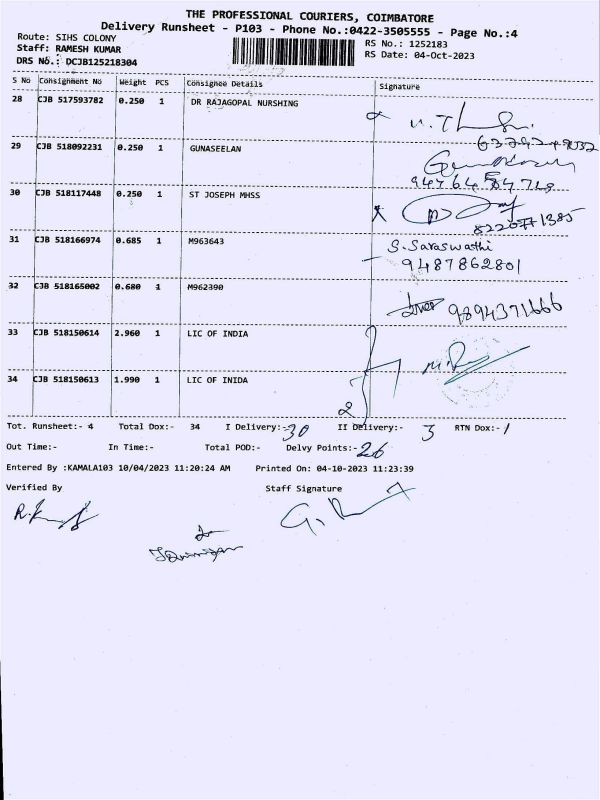 THE PROFESSIONAL COURIERS, COIMBATORE
Delivery Runsheet - P103 - Phone No.:0422-3505555 - Page No.:4
Route: SIHS COLONY
RS No.: 1252183
Staff: RAMESH KUMAR
RS Date: 04-Oct-2023
DRS No.: DCJB125218304
S No Consignment No Weight PCS Consignee Details Signature
28 CJB 517593782 0.250 1 DR RAJAGOPAL NURSHING
29 CJB 518092231 0.250 1 GUNASEELAN
30 CJB 518117448 0.250 1 ST JOSEPH MHSS
31 CJB 518166974 0.685 1 M963643 S. Saraswathi
9487862801
32 CJB 518165002 0.680 1 M962390
9894371666
33 CJB 518150614 2.960 1 LIC OF INDIA
34 CJB 518150613 1.990 1 LIC OF INIDA
Tot. Runsheet:- 4 Total Dox:- 34 I Delivery:- 30 II Delivery:- 3 RTN Dox:- 1
Out Time:- In Time:- Total POD:- Delvy Points:- 26
Entered By :KAMALA103 10/04/2023 11:20:24 AM Printed On: 04-10-2023 11:23:39
Verified By Staff Signature